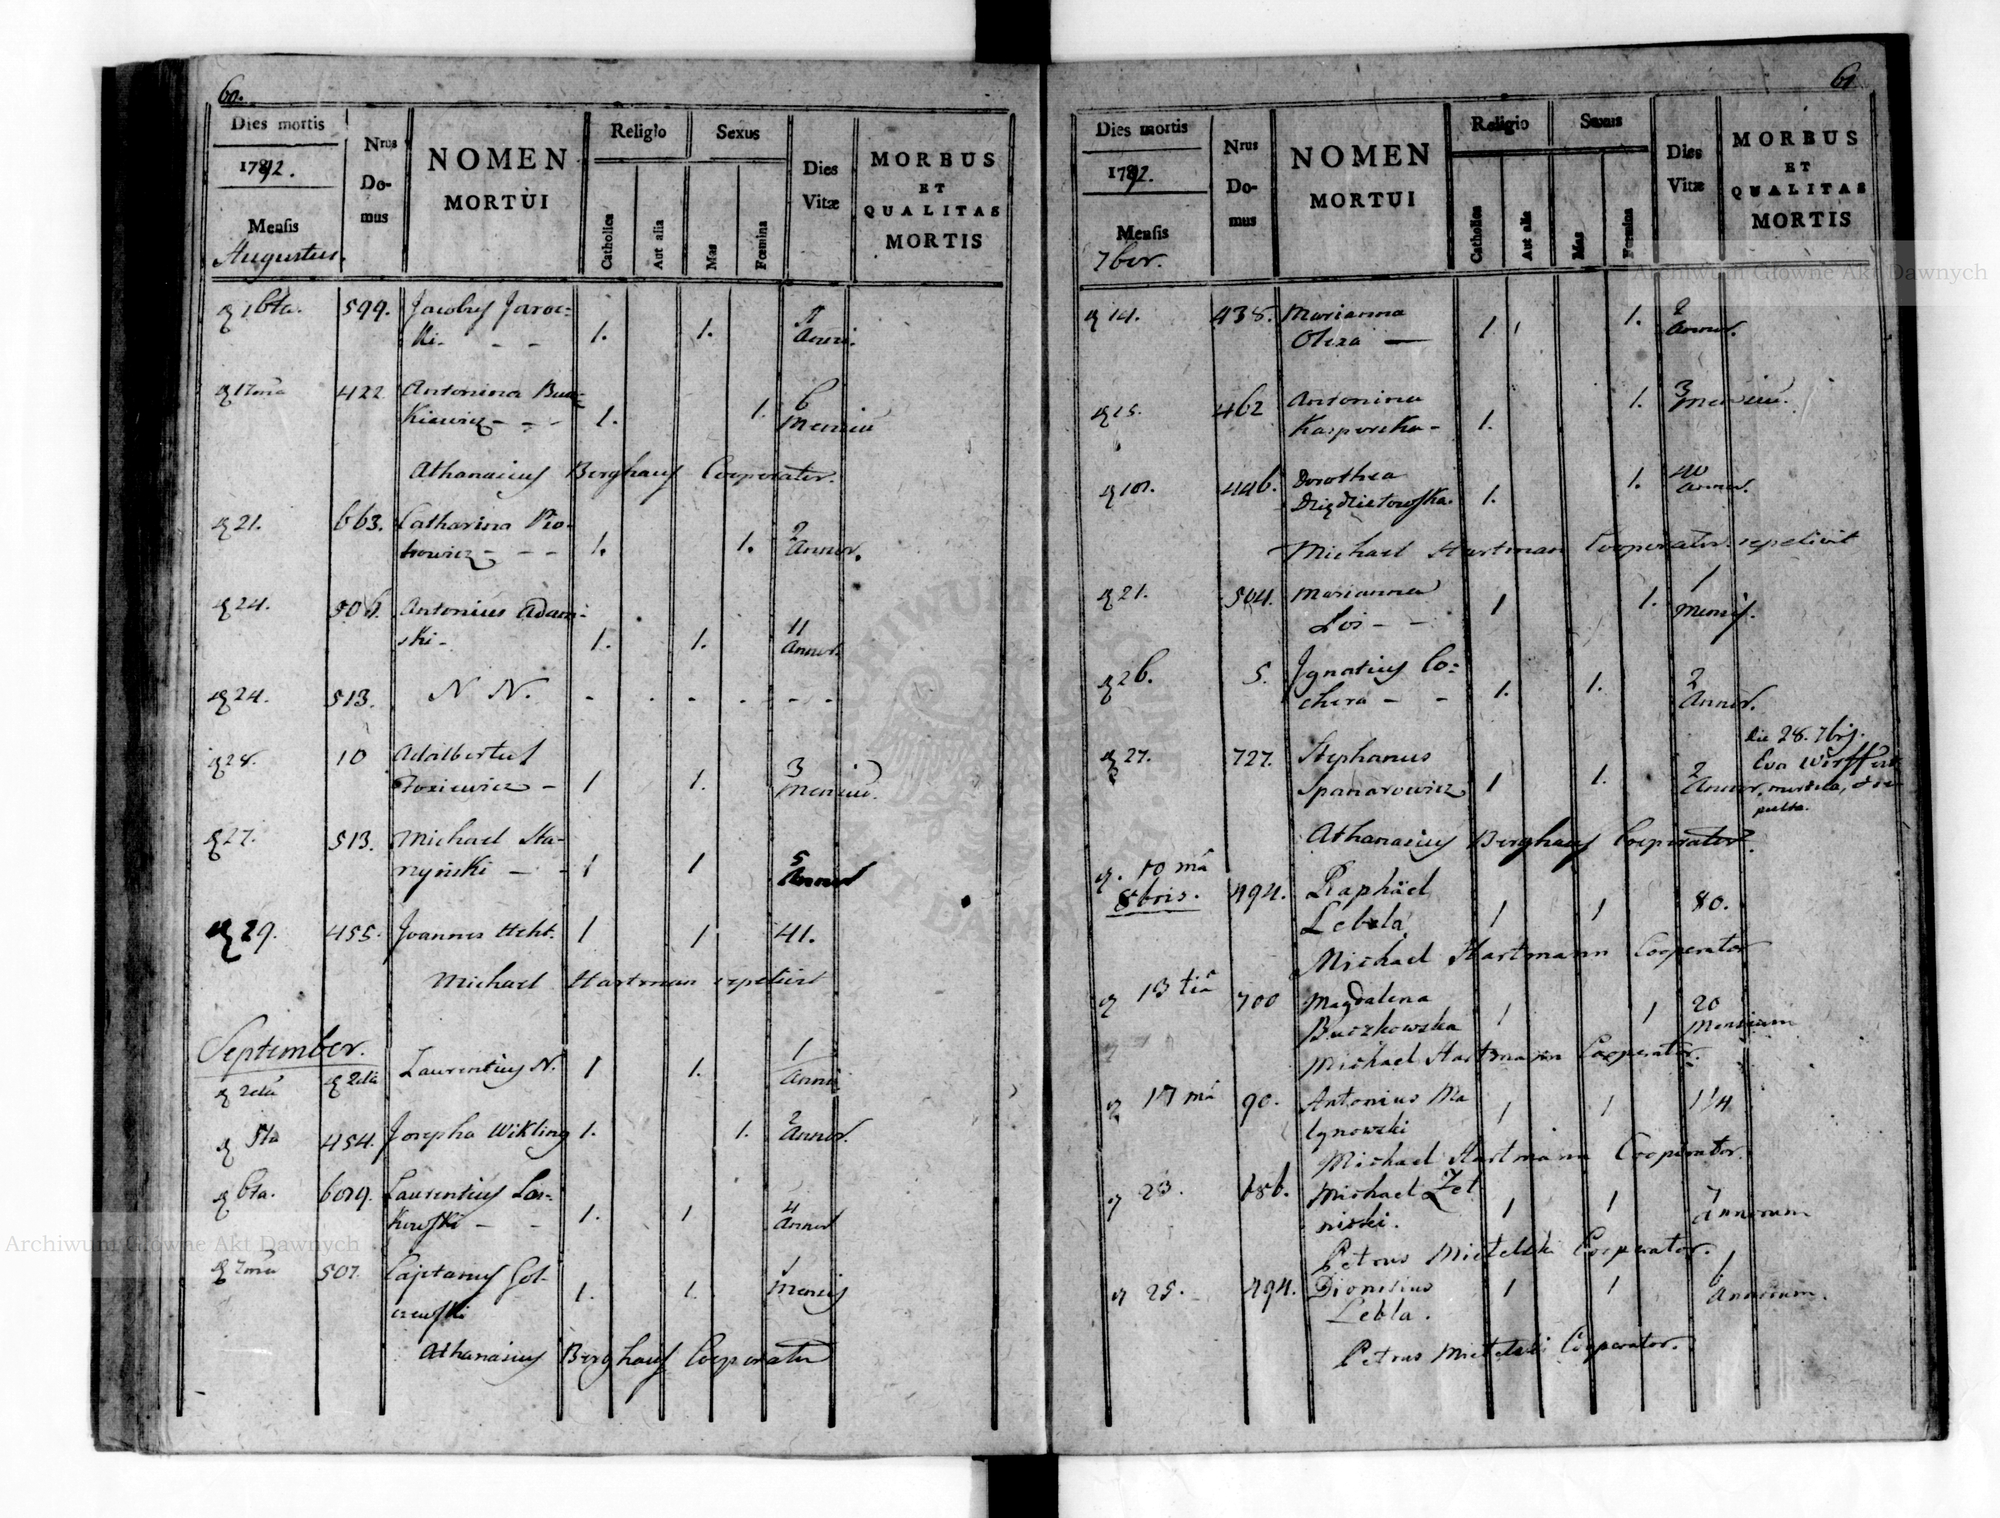 60.
Dies mortis
1792.
Mensis
Augustus.
Nrus
Do-
mus
NOMEN
MORTUI
Religio
Catholica
Aut alia
Sexus
Mas
Fœmina
Dies
Vitæ
MORBUS
ET
QUALITAS
MORTIS
16ta. 599. Jacobus Jaroc=
ki - - - 1. 1. Anni.
422 Antonina Bu
kiewicz - - - 1. 1. 6
Mensiu
Athanasius Berghaus Cooperator.
21. 663. Catharina Pio-
trowicz - - - 1. 1. 2
Annor.
24. 506. Antonius Adam-
ski - 1. 1. 11
Annor.
24. 513. N N. - - - - - -
28. 10 Adalbertus
1 1. 3
Mensiu.
27. 513. Michael Sta-
rzyński - - 1 1 5
Annor
29. 455. Joannes Hekt. 1 1 41.
Michael Hartman repetivit
September.
2da 2da Laurentius N. 1 1. 1
Anni
5ta 454. Josepha Wikling 1. 1. 2
Annor.
6ta. Laurentius Las-
kowski - - 1. 1 4
Annor
7ma 507. Cajetanus Gol-
czewski 1. 1. 1
Mensis
Athanasius Berghaus Cooperator
61
Dies mortis
1792.
Mensis
7ber.
Nrus
Do-
mus
NOMEN
MORTUI
Religio
Catholica
Aut alia
Sexus
Mas
Fœmina
Dies
Vitæ
MORBUS
ET
QUALITAS
MORTIS
14. 438. Marianna
Oliza — 1. 1. 2
Annor.
15. 462 Antonina
Kasperska - 1. 1. 3
Mensiu.
446. Dorothea
1. 1. 40
Annor.
Michael Hartman Cooperator repetivit
21. 504. Marianna
Lis - - 1 1. 1
Mensis.
26. 5. Ignatius Co=
chera - - 1. 1. 2
Annor.
27. 727. Stephanus
Spanarowicz 1 1. 2
Annor.
die 28. 7bris.
Eva
mortua, & se
pulta.
Athanasius Berghaus Cooperator.
10 ma
8bris. 494. Raphäel
Lebla 1 1 80.
Michael Hartmann Cooperator
13 tia 700 Magdalena
Buczkowska 1 1 20
Mensium
Michael Hartmann Cooperator.
17 ma 90. Antonius Ma
lynowski 1 1 1/4
Michael Hartmann Cooperator.
23. 656. Michael Zel
niski. 1 1 7
Annorum
Petrus Mietelski Cooperator.
25. 494. Dionisius
Lebla. 1 1 6
Annorum.
Petrus Mietelski Cooperator.
Archiwum Główne Akt Dawnych
Archiwum Główne Akt Dawnych